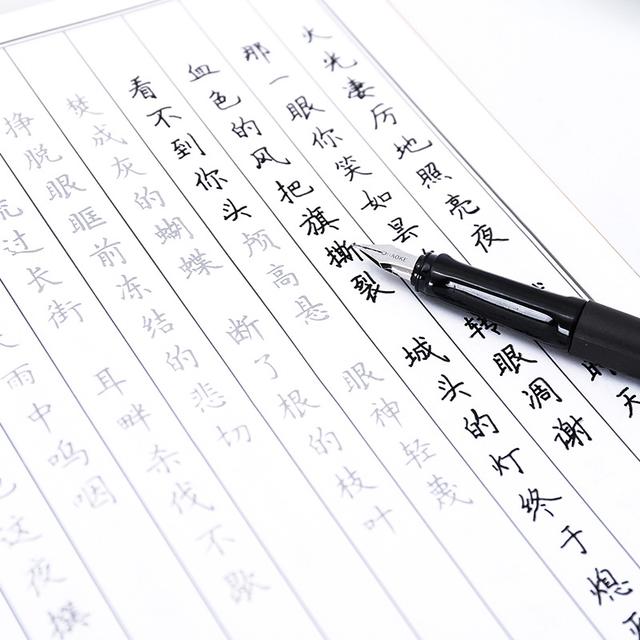 火光凄厉地照亮夜 天
那一眼你笑如昙 转眼凋谢
血色的风把旗撕裂 城头的灯终于熄
看不到你头颅高悬 眼神轻蔑
焚成灰的蝴蝶 断了根的枝叶
挣脱眼眶前冻结的悲切
流过长街 耳畔杀伐不歇
雨中呜咽
这夜撰